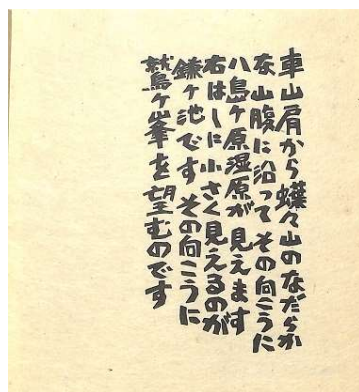 車山肩から蝶々山のなだらか
な山腹に沿って その向こうに
八島ケ原湿原が 見えます
右はしに小さく見えるのが
鎌ケ池です その向こうに
鷲ケ峯を望むのです